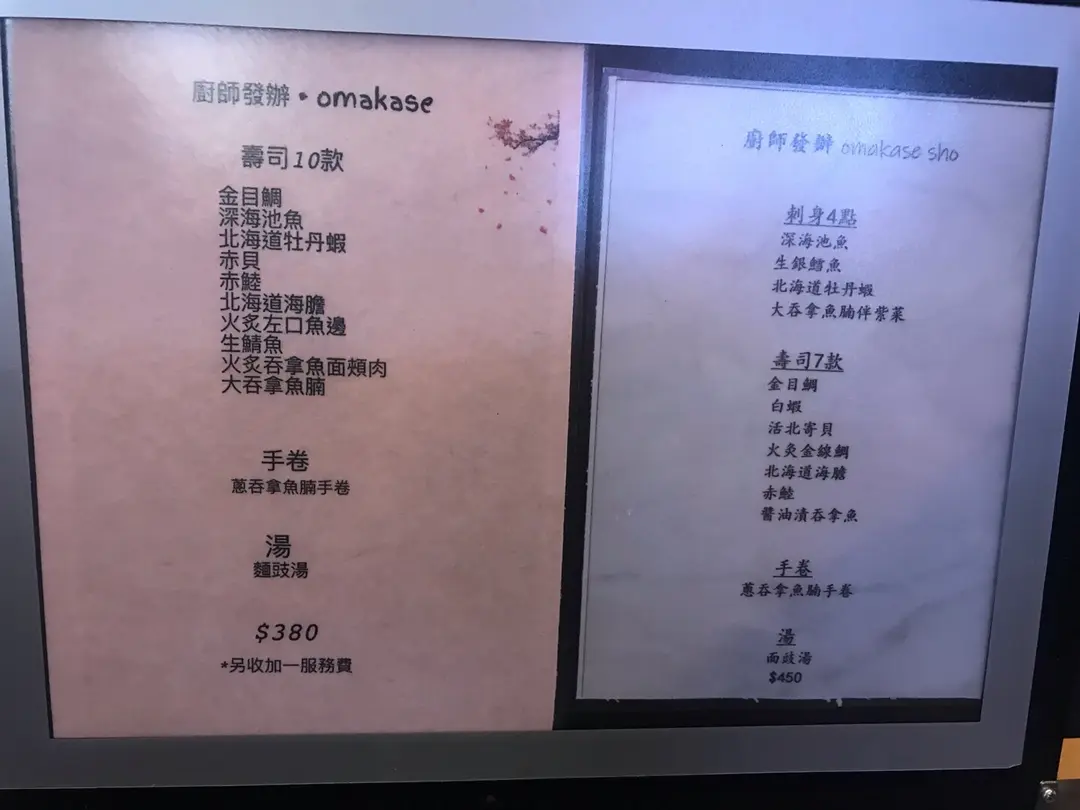 廚師發辦•omakase
壽司10款
金目鯛
深海池魚
北海道牡丹蝦
赤貝
赤鯥
北海道海膽
火炙左口魚邊
生鯖魚
火炙吞拿魚面頰肉
大吞拿魚腩
手卷
蔥吞拿魚腩手卷
湯
麵豉湯
$380
*另收加一服務費
廚師發辦 omakase sho
刺身4點
深海池魚
生銀鱈魚
北海道牡丹蝦
大吞拿魚腩伴紫菜
壽司7款
金目鯛
白蝦
活北寄貝
火灸金線鯛
北海道海膽
赤鯥
醬油漬吞拿魚
手卷
蔥吞拿魚腩手卷
湯
面豉湯
$450